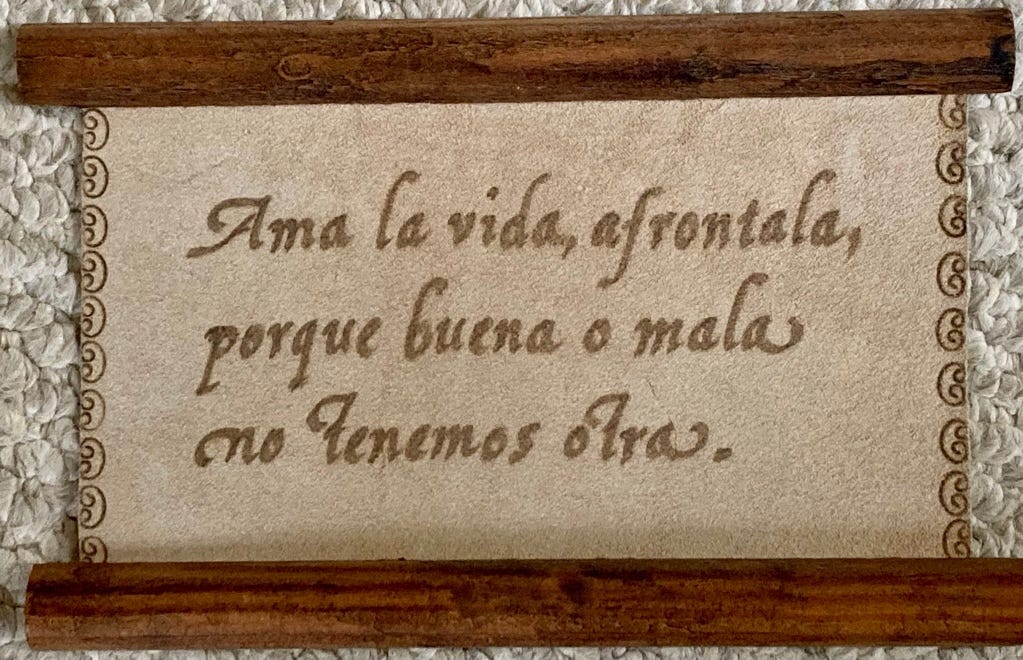 Ama la vida, afrontala,
porque buena o mala
no tenemos otra.